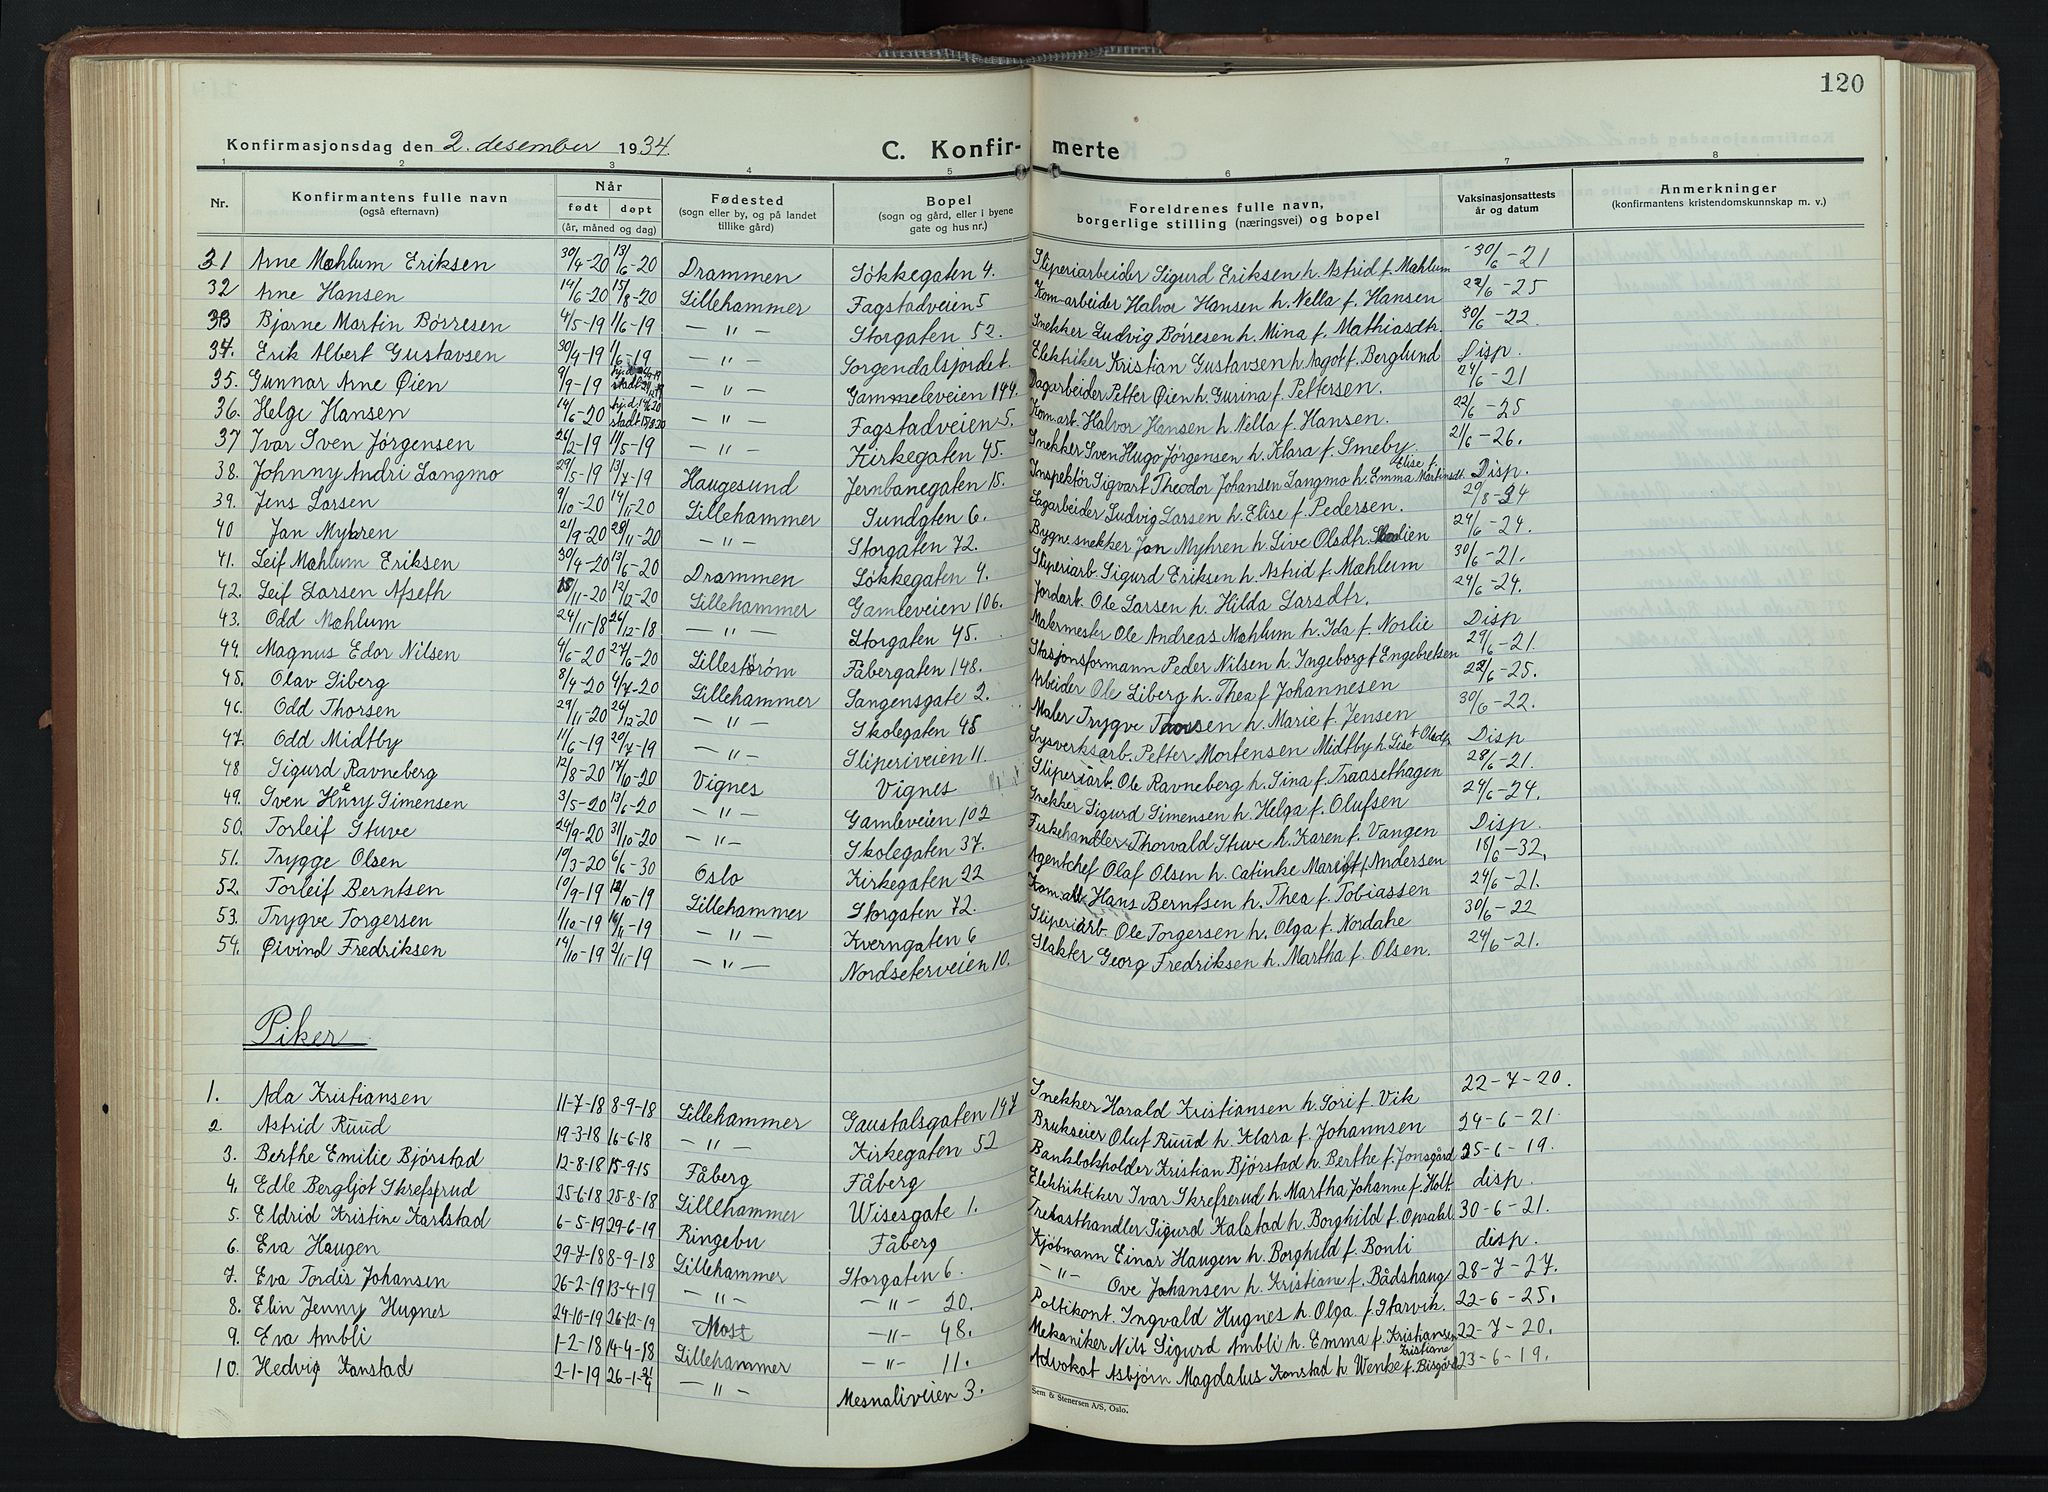 120
Konfirmasjonsdag den 2. desember 1934. C. Konfir- merte
1 2 3 4 5 6 7 8
Nr. Konfirmantens fulle navn (også efternavn) Når født døpt (år, måned og dag) Fødested (sogn eller by, og på landet tillike gård) Bopel (sogn og gård, eller i byene gate og hus nr.) Foreldrenes fulle navn, borgerlige stilling (næringsvei) og bopel Vaksinasjonsattests år og datum Anmerkninger (konfirmantens kristendomskunnskap m. v.)
31 Arne Mæhlum Eriksen 30/4-20 13/6-20 Drammen Løkkegaten 4. Sliperiarbeider Sigurd Eriksen h. Astrid f. Mæhlum 30/6-21
32 Arne Hansen 14/6-20 15/8-20 Lillehammer Fagstadveien 5 Kom-arbeider Halvor Hansen h. Nella f. Hansen 22/6-25
33 Bjarne Martin Børresen 4/5-19 1/6-19 — " — Storgaten 52. Snekker Ludvig Børresen h. Mina f. Mathiasdtr. 30/6-22.
34. Erik Albert Gustavsen 30/4-19 1/6-19 — " — Sorgendalsjordet. Elektriker Kristian Gustavsen h. Nagot f. Berglund Disp.
35. Gunnar Arne Øien 9/9-19 — " — Gammeleveien 144. Dagarbeider Petter Øien h. Gurina f. Pettersen. 24/6-21
36. Helge Hansen 14/6-20 hj.d 14/6 20 stadf 15/8 20 — " — Fagstadveien 5. Kom.arb. Halvor Hansen h. Nella f. Hansen. 22/6-25
37 Ivar Sven Jørgensen 24/2-19 11/5-19 — " — Kirkegaten 45. Snekker Sven Hugo Jørgensen h. Klara f. Smeby. 21/6-26.
38. Johnny Andri Langmo 29/5-19 13/7-19 Haugesund Jernbanegaten 15. Inspektør Sigvart Theodor Johansen Langmo h. Emma Elise f. Martinsdt. Disp.
39. Jens Larsen 9/10-20 14/11-20 Lillehammer Sundgten 6. Sagarbeider Ludvig Larsen h. Elise f. Pedersen. 29/8-24
40 Jan Myhren 21/9-20 28/11-20 — " — Storgaten 72. Bygn.snekker Jan Myhren h. Live Olsdtr. 24/6-24.
41. Leif Mæhlum Eriksen 30/4-20 13/6-20 Drammen Løkkegaten 4. Sliperiarb. Sigurd Eriksen h. Astrid f. Mæhlum 30/6-21.
42. Leif Larsen Afseth 15/11-20 12/12-20 Lillehammer Gamleveien 106. Jordarb. Ole Larsen h. Hilda Larsdtr. 24/6-24.
43. Odd Mæhlum 24/11-18 26/12-18 — " — Storgaten 45. Malermester Ole Andreas Mæhlum h. Ida f. Noslie Disp
44. Magnus Edor Nilsen 4/6-20 27/6-20 Lillestrøm Fåbergaten 148. Stasjonsformann Peder Nilsen h. Ingeborg f Engebretsen 29/6-21.
45. Olav Liberg 8/4-20 4/7-20 Lillehammer Langensgate 2. Arbeider Ole Liberg h. Thea f Johannesen 22/6-25.
46. Odd Thorsen 29/11-20 26/12-20 — " — Skolegaten 45 Maler Trygve Thorsen h. Marie f. Jensen 30/6-22.
47. Odd Midtby 11/6-19 20/7-19 — " — Sliperiveien 11. Lysverksarb. Petter Mortensen Midtby h. Lise f Olsdtr Disp
48 Sigurd Ravneberg 12/8-20 17/10-20 Vignes Vignes Sliperiarb. Ole Ravneberg h. Sina f. Traasethagen 28/6-21.
49. Sven Henry Simensen 3/5-20 13/6-20 — " — Gamleveien 102 Snekker Sigurd Simensen h. Helga f. Olufsen 24/6-24.
50. Torleif Stuve 24/9-20 31/10-20 — " — Skolegaten 37. Fiskehandler Thorvald Stuve h. Karen f. Vangen Disp.
51. Trygge Olsen 19/3-20 6/6-30 Oslo Kirkegaten 22 Agentchef Olaf Olsen h. Catinke Marigt f. Andersen 18/6-32.
52. Torleif Berntsen 10/9-19 12/10-19 Lillehammer Storgaten 72. Kom-arb. Hans Berntsen h. Thea f. Tobiassen 24/6-21.
53. Trygve Torgersen 1/10-19 16/11-19 — " — Kverngaten 6 Sliperiarb. Ole Torgersen h. Olga f. Nordahe 30/6-22
54. Øivind Fredriksen 19/10-19 2/11-19 — " — Nordseterveien 10. Slakter Georg Fredriksen h. Martha f. Olsen. 24/6-21.
Piker
1. Ada Kristiansen 11-7-18 8-9-18 Lillehammer Gaustalsgaten 147 Snekker Harald Kristiansen h. Sori f. Vik 22-7-20.
2. Astrid Ruud 19-3-18 16-6-18 — " — Kirkegaten 52 Brukseier Oluf Ruud h. Klara f. Johannsen 24-6-21.
3. Berthe Emilie Bjørstad 12-8-18 15-9-15 Fåberg Fåberg Bankbokholder Kristian Bjørstad h. Berthe f. Jonsgård 25-6-19.
4. Edle Bergljot Skrefsrud 25-6-18 25-8-18 Lillehammer Wisesgate 1. Elektriktiker Ivar Skrefserud h. Martha Johanne f. Holt. disp.
5. Eldrid Kristine Karlstad 6-5-19 29-6-19 Ringebu Fåberg Trelasthandler Sigurd Kalstad h. Borghild f. Opsahl. 30-6-21.
6. Eva Haugen 29-7-18 8-9-18 Lillehammer Storgaten 6. Kjøbmann Einar Haugen h. Borghild f. Bonli disp.
7. Eva Tordis Johansen 26-2-19 13-4-19 — " — — " — 20. — " — Ove Johansen h. Kristiane f. Bådshaug 28-7-27.
8. Elin Jenny Hugnes 24-10-19 26-12-19 Moss — " — 48. Poltikont. Ingvald Hugnes h. Olga f. Starvik. 22-6-25.
9. Eva Ambli 1-2-18 14-4-18 Lillehammer — " — 11. Mekaniker Nils Sigurd Ambli h. Emma f. Kristiansen 22-7-20.
10. Hedvig Kanstad 2-1-19 — " — Mesnaliveien 3. Advokat Asbjørn Magdalus Kanstad h. Wenke Kristiane f. Bisgård 23-6-19.
Sem & Stenersen A/S, Oslo.